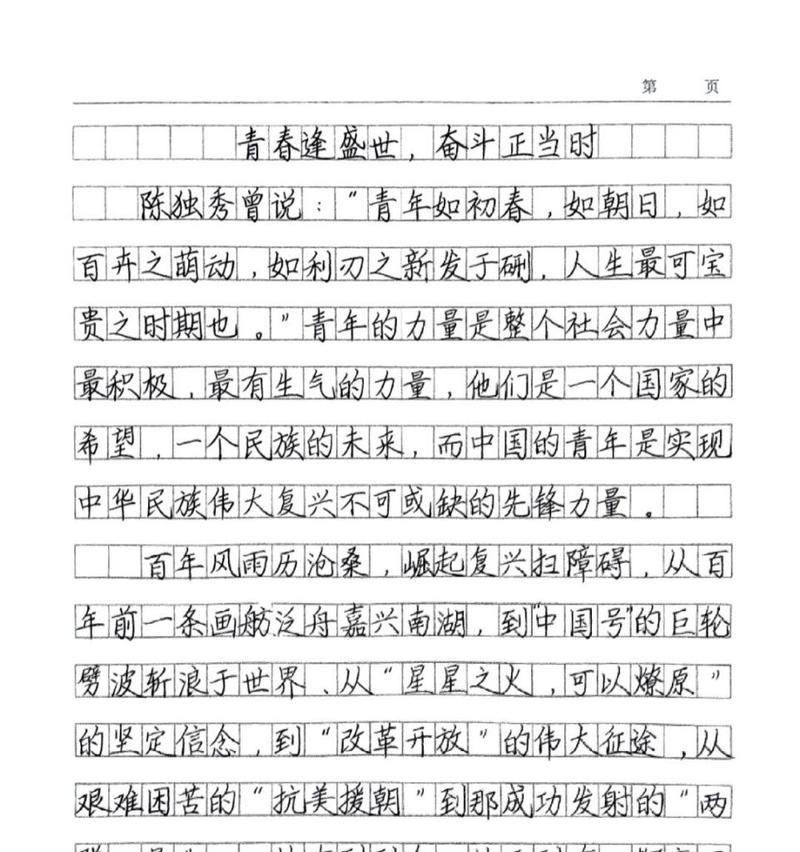 第 页
青春逢盛世，奋斗正当时
陈独秀曾说："青年如初春，如朝日，如
百卉之萌动，如利刃之新发于硎，人生最可宝
贵之时期也。"青年的力量是整个社会力量中
最积极，最有生气的力量，他们是一个国家的
希望，一个民族的未来，而中国的青年是实现
中华民族伟大复兴不可或缺的先锋力量。
百年风雨历沧桑，崛起复兴扫障碍，从百
年前一条画舫泛舟嘉兴南湖，到"中国号"的巨轮
劈波斩浪于世界、从"星星之火，可以燎原"
的坚定信念，到"改革开放"的伟大征途，从
艰难困苦的"抗美援朝"到那成功发射的"两